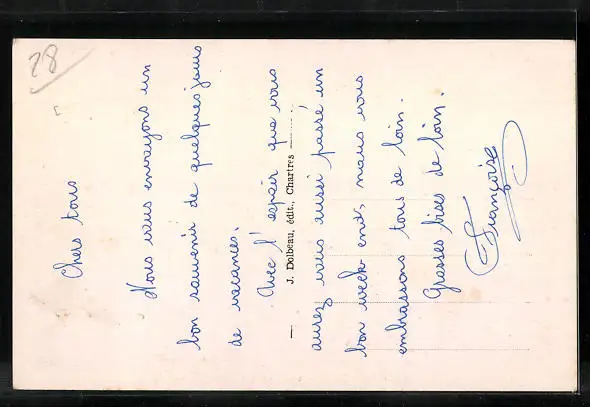 28
Chers tous
Nous vous envoyons un
bon souvenir de quelques jours
de vacances.
Avec l'espoir que vous
— J. Dolbeau, édit., Chartres —
aurez vous aussi passé un
bon week-end, nous vous
embrassons tous de loin.
Grosses bises de loin.
Françoise